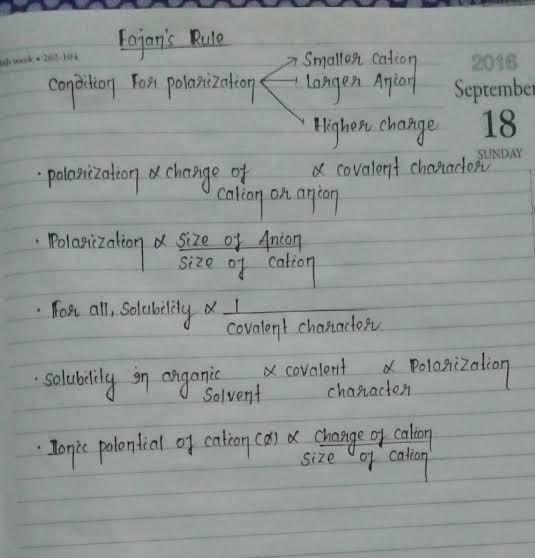 Fajan's Rule
week • 262-104
2016
September
18
SUNDAY
Condition For polarization → Smaller cation
→ Larger Anion
→ Higher charge
• polarization ∝ charge of cation or anion ∝ covalent character
• Polarization ∝ Size of Anion
Size of cation
• For all, Solubility ∝ 1
Covalent character
• Solubility in organic Solvent ∝ covalent character ∝ Polarization
• Ionic potential of cation (ø) ∝ charge of cation
size of cation